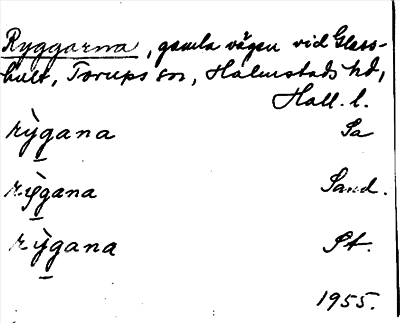 Ryggarna, gamla vägen vid Glass-
hult, Torups sn, Halmstads hd,
Hall. l.
rỳgana Sa
rỳgana Sand.
rỳgana St.
1955.